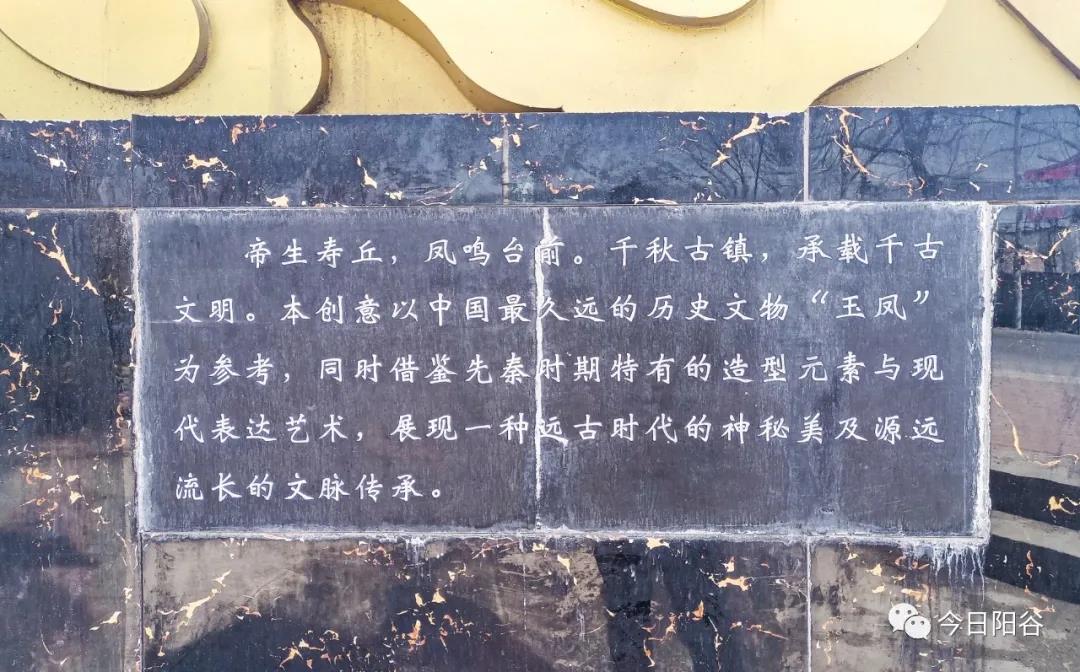 帝生寿丘，凤鸣台前。千秋古镇，承载千古
文明。本创意以中国最久远的历史文物“玉凤”
为参考，同时借鉴先秦时期特有的造型元素与现
代表达艺术，展现一种远古时代的神秘美及源远
流长的文脉传承。
今日阳谷